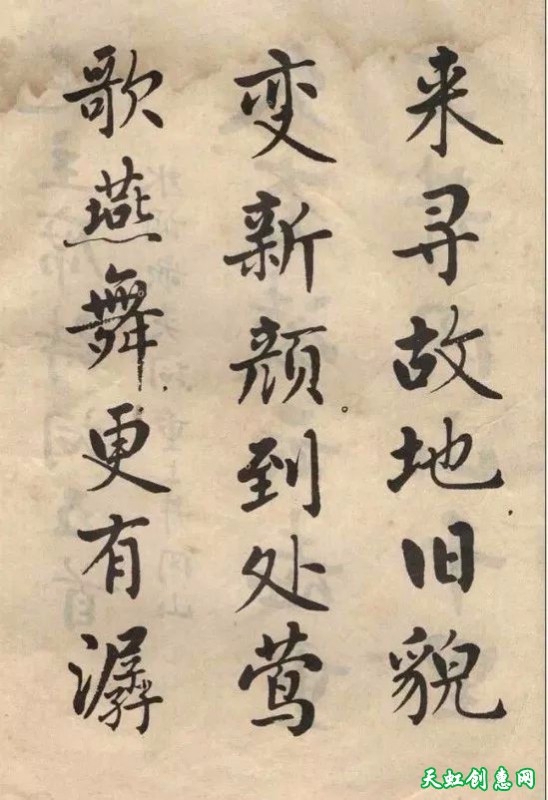 来寻故地旧貌
变新颜。到处莺
歌燕舞,更有潺
天虹创惠网